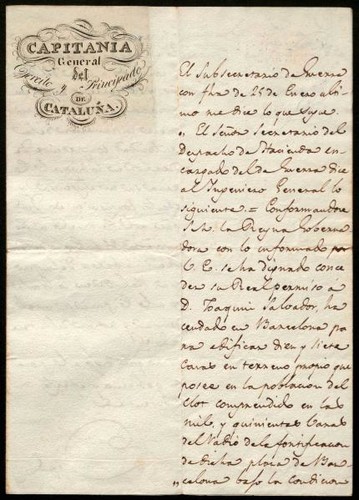 CAPITANIA
General
del
Ejercito y Principado
DE
CATALUÑA.
El Subsecretario de Guerra
con fha de 25 de Enero ulti
mo me dice lo que sigue
„ El Señor Secretario del
Despacho de Hacienda en
cargado del de Guerra dice
al Ingeniero General lo
siguiente = Conformandose
S. M. la Reyna Goberna
dora con lo informado por
V. E. se ha dignado conce
der su Real permiso a
D. Joaquin Salvador, ha
cendado en Barcelona pa
ra edificar diez y siete
Casas en terreno propio que
posee en la poblacion del
Clot comprendido en las
mil, y quinientas Varas
del Radio de la fortificacion
de dicha plaza de Bar
„ celona bajo la condicion